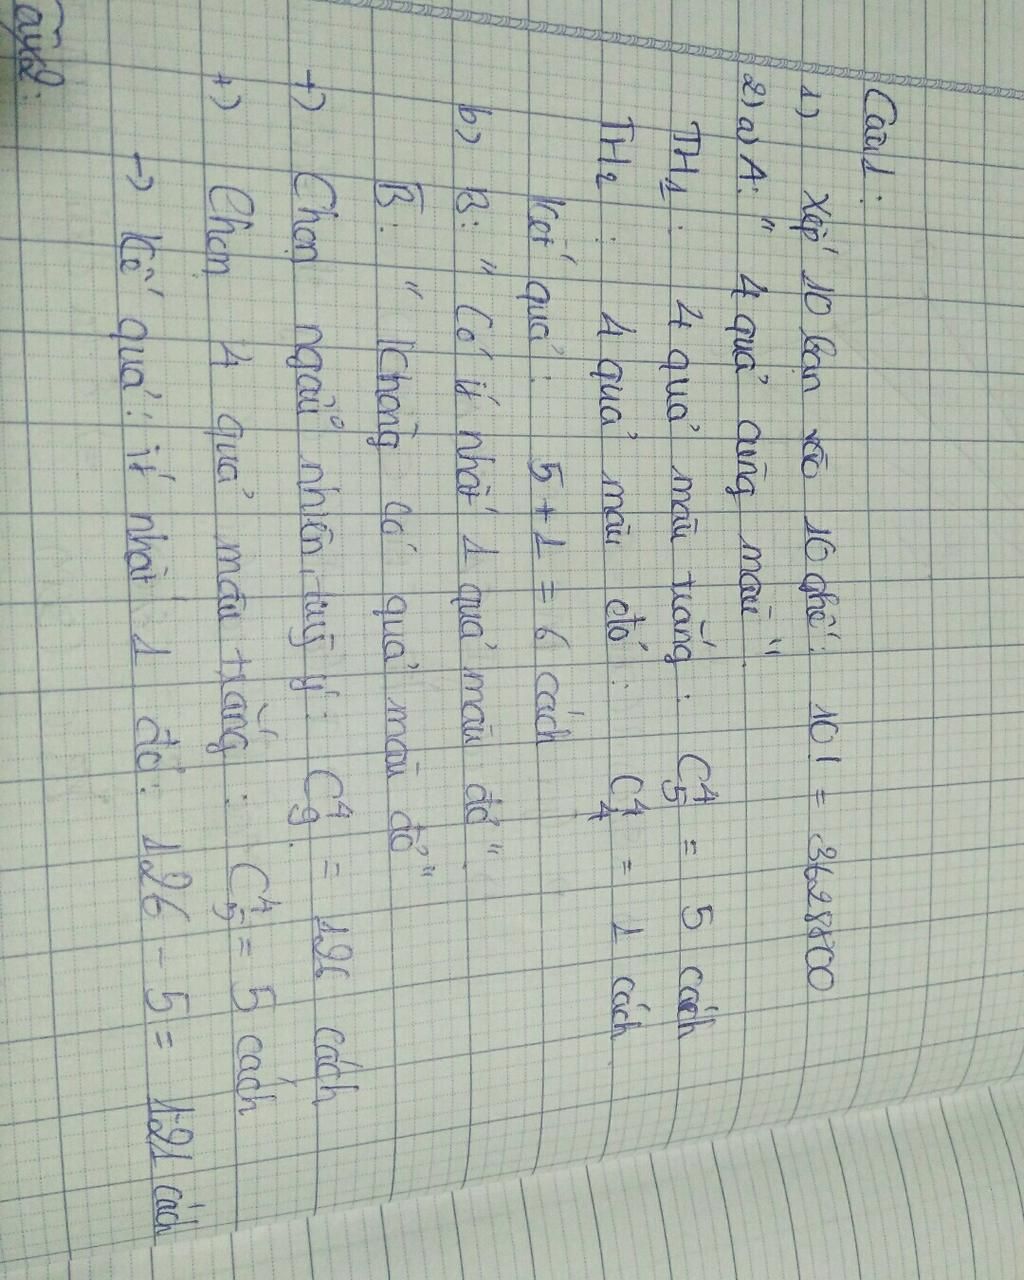 Câu 1:
1) Xếp 10 bạn vào 10 ghế: 10! = 3628800
2) a) A: " 4 quả cùng màu "
TH1: 4 quả màu trắng: C_5^4 = 5 cách
TH2: 4 quả màu đỏ: C_4^4 = 1 cách
Kết quả: 5 + 1 = 6 cách
b) B: " Có ít nhất 1 quả màu đỏ".
B̅: " Không có quả màu đỏ"
+) Chọn ngẫu nhiên, tuỳ ý: C_9^4 = 126 cách
+) Chọn 4 quả màu trắng: C_5^4 = 5 cách
→ Kế quả: ít nhất 1 đỏ: 126 - 5 = 121 cách
Câu 2: